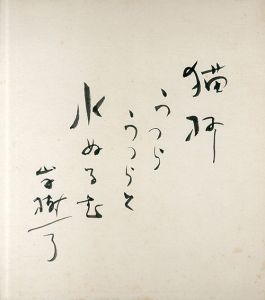 猫柳
うつら
うつらと
水ぬるむ